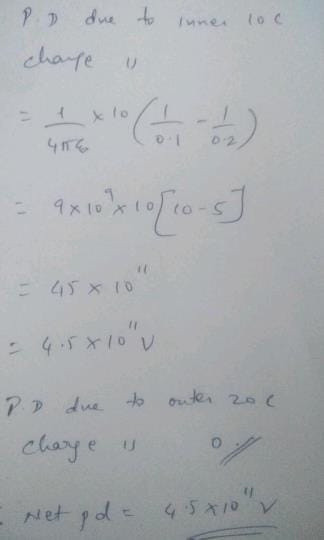 P.D due to inner 10 C
charge is
= 1/4πε × 10 (1/0.1 - 1/0.2)
= 9 × 10⁹ × 10 [10 - 5]
= 45 × 10¹¹
= 4.5 × 10¹¹ V
P.D due to outer 20 C
charge is 0.
: Net pd = 4.5 × 10¹¹ V